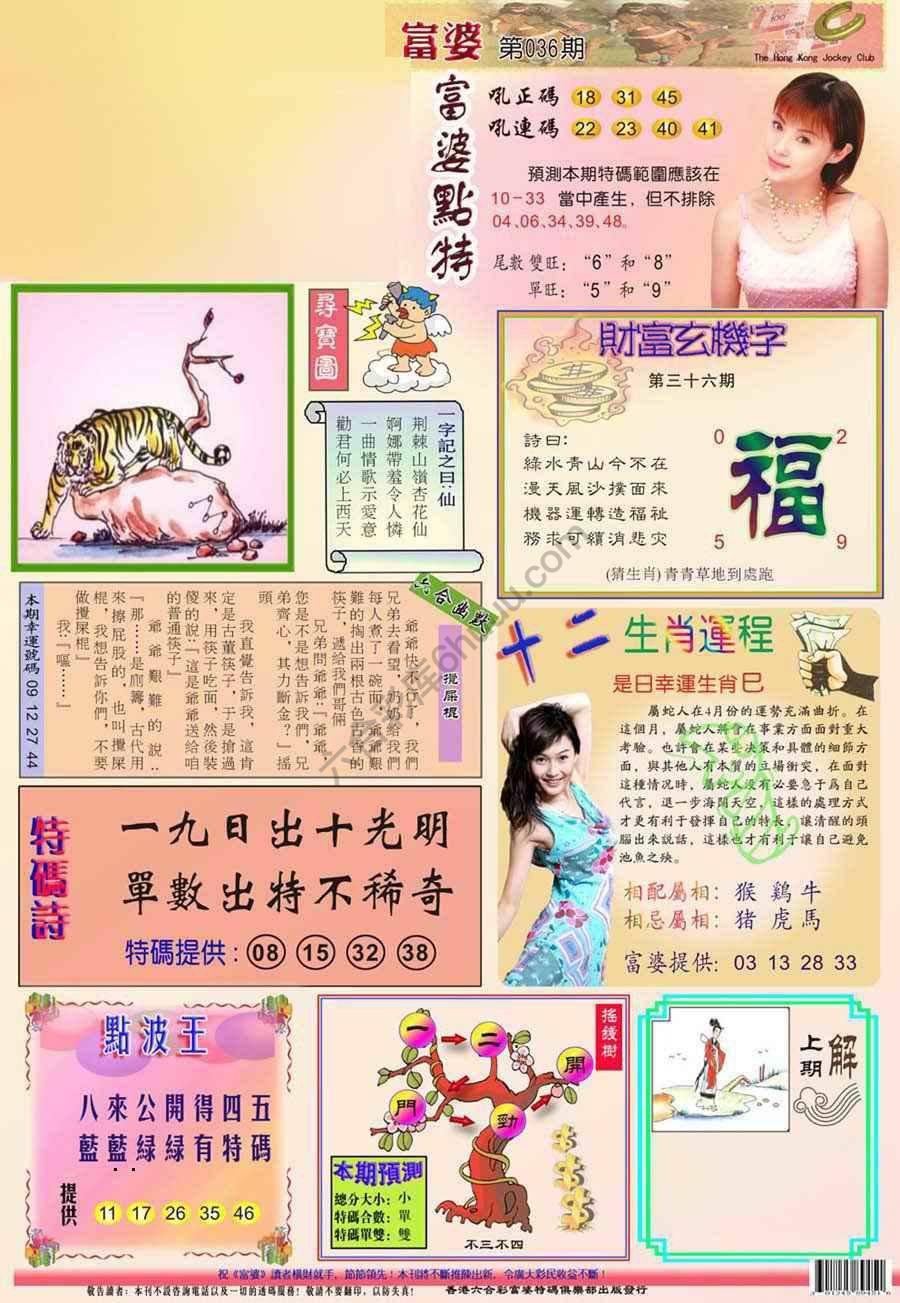 富婆 第036期
The Hong Kong Jockey Club
富婆點特
吼正碼 18 31 45
吼連碼 22 23 40 41
預測本期特碼範圍應該在
10-33 當中產生，但不排除
04、06、34、39、48。
尾數雙旺：“6”和“8”
單旺：“5”和“9”
尋寶圖
一字記之曰：仙
荆棘山嶺杏花仙
婀娜帶羞令人憐
一曲情歌示愛意
勸君何必上西天
財富玄機字
第三十六期
詩曰：
綠水青山今不在
漫天風沙撲面來
機器運轉造福祉
務求可續消悲灾
0 2
福
5 9
(猜生肖)青青草地到處跑
六合幽默
攪屎棍
爺爺快不行了，我們
兄弟去看望，奶奶給我們
每人煮了一碗面，爺爺艱
難的掏出兩根古色古香的
筷子，遞給我們哥倆
兄弟問爺爺：“爺爺，
您是不是想告訴我們，兄
弟齊心，其力斷金？”搖
頭
我直覺告訴我，這肯
定是古董筷子，于是搶過
來，用筷子吃面，然後裝
傻的説：“這是爺爺送給咱
的普通筷子”
爺爺艱難的説：
“那……是廁籌，古代用
來擦屁股的，也叫攪屎
棍，我想告訴你們，不要
做攪屎棍”
我：“嘔……”
本期幸運號碼 09 12 27 44
十二生肖運程
是日幸運生肖巳
屬蛇人在4月份的運勢充滿曲折。在
這個月，屬蛇人將會在事業方面面對重大
考驗。也許會在某些决策和具體的細節方
面，與其他人有本質的立場衝突，在面對
這種情况時，屬蛇人没有必要急于爲自己
代言，退一步海闊天空，這樣的處理方式
才更有利于發揮自己的特長，讓清醒的頭
腦出來説話，這樣也才有利于讓自己避免
池魚之殃。
相配屬相：猴 鷄 牛
相忌屬相：猪 虎 馬
富婆提供：03 13 28 33
特碼詩
一九日出十光明
單數出特不稀奇
特碼提供：08 15 32 38
點波王
八來公開得四五
藍藍緑緑有特碼
提供 11 17 26 35 46
搖錢樹
一 二 開
門 勁
本期預測
總分大小：小
特碼合數：單
特碼單雙：雙
不三不四
上期解
祝《富婆》讀者橫財就手，節節領先！本刊將不斷推陳出新，令廣大彩民收益不斷！
敬告讀者：本刊不設咨詢電話以及一切的透碼服務！敬請不要翻印，以防失真！ 香港六合彩富婆特碼俱樂部出版發行